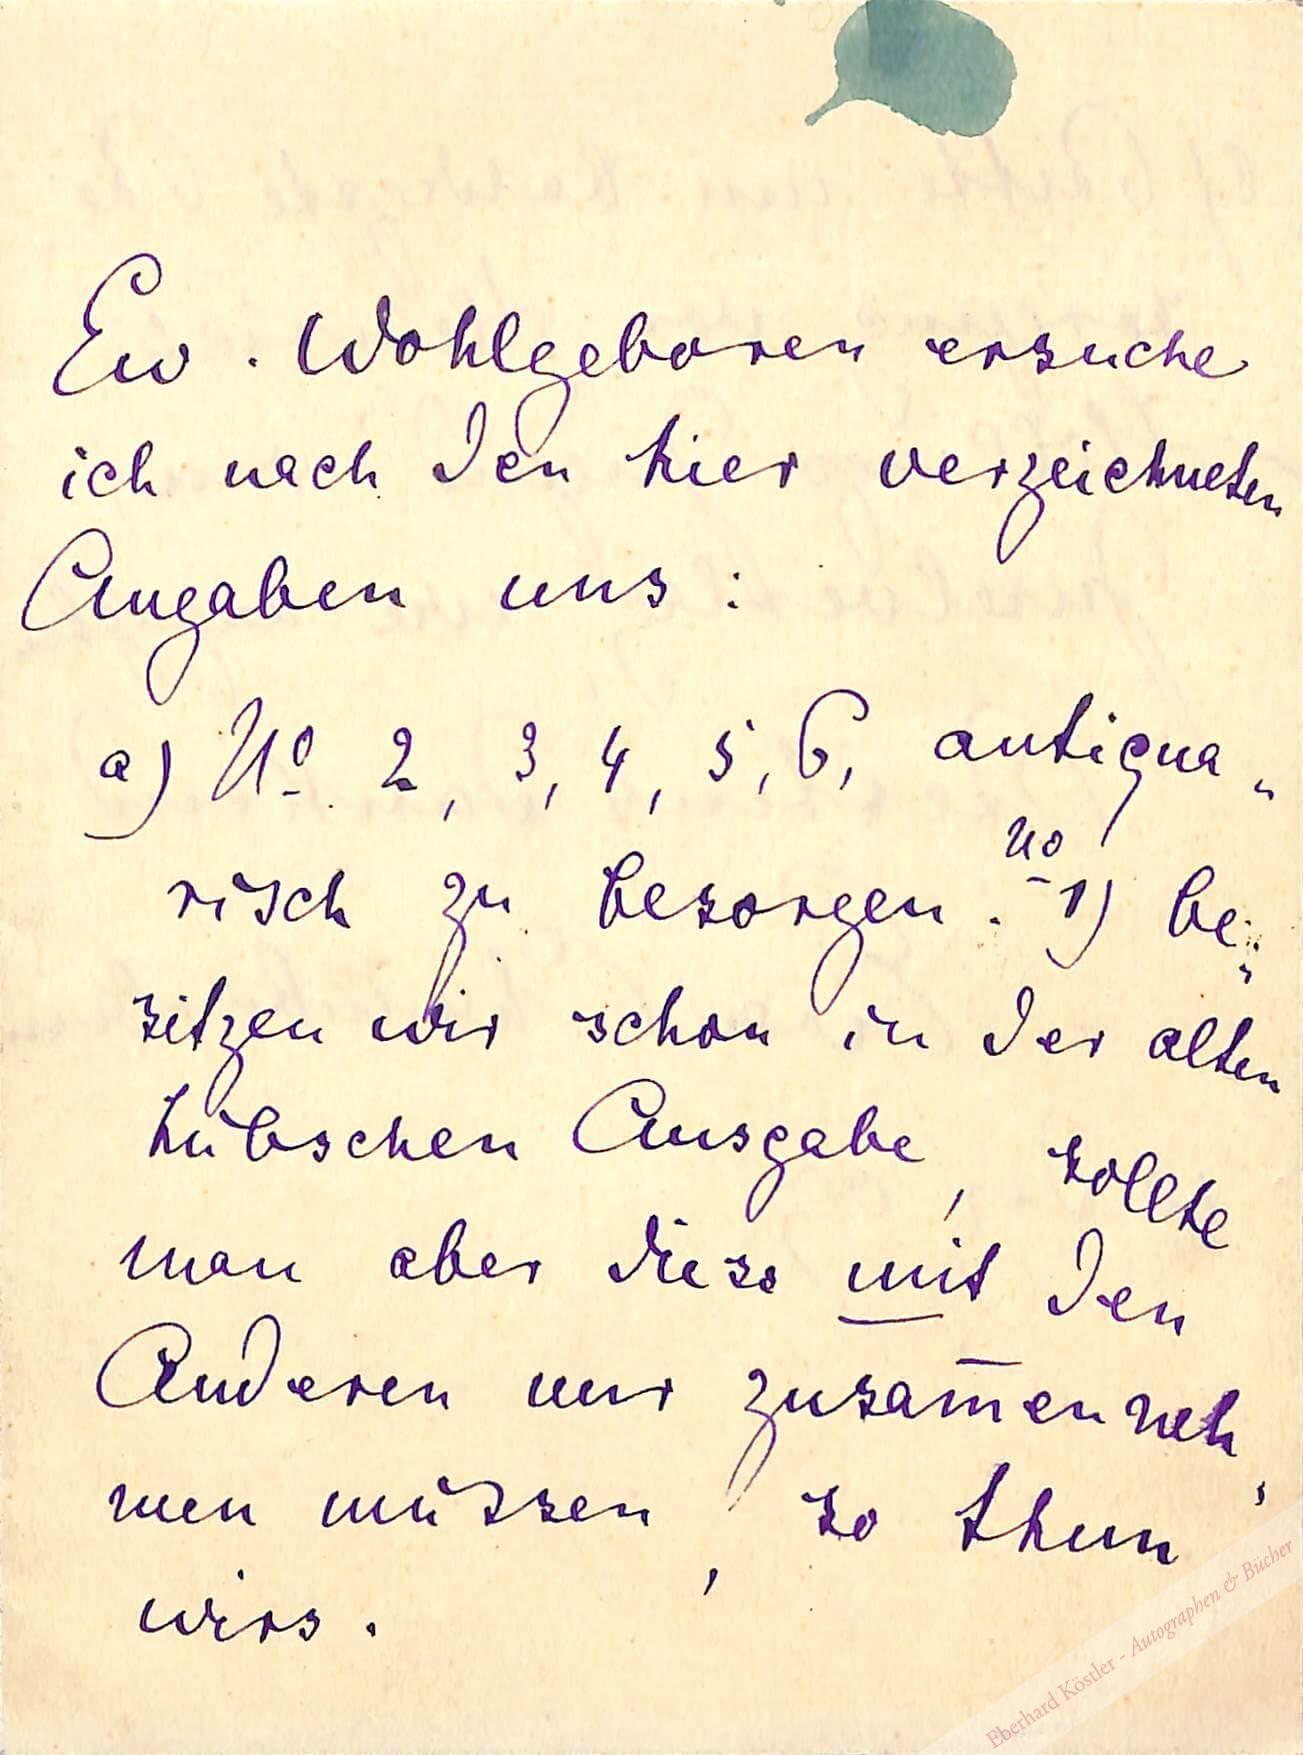 Ew. Wohlgeboren ersuche
ich nach den hier verzeichneten
Angaben uns:
a) No 2, 3, 4, 5, 6, antiqua„
risch zu besorgen. No 1) be„
sitzen wir schon in der alten
hübschen Ausgabe, sollte
man aber diess mit den
Anderen nur zusam̅enneh„
men müssen, so thun
wirs.
Eberhard Köstler - Autographen & Bücher